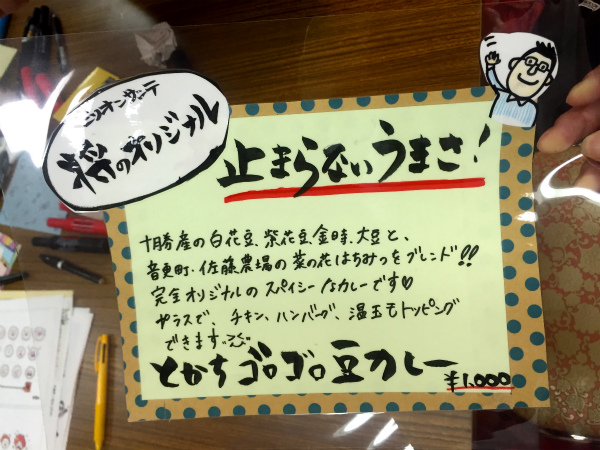 のオリジナル
止まらないうまさ!
十勝産の白花豆、紫花豆、金時、大豆と、
音更町・佐藤農場の菜の花はちみつをブレンド!!
完全オリジナルのスパイシーなカレーです♡
プラスで、チキン、ハンバーグ、温玉もトッピング
できます。
とかちゴロゴロ豆カレー
¥1,000